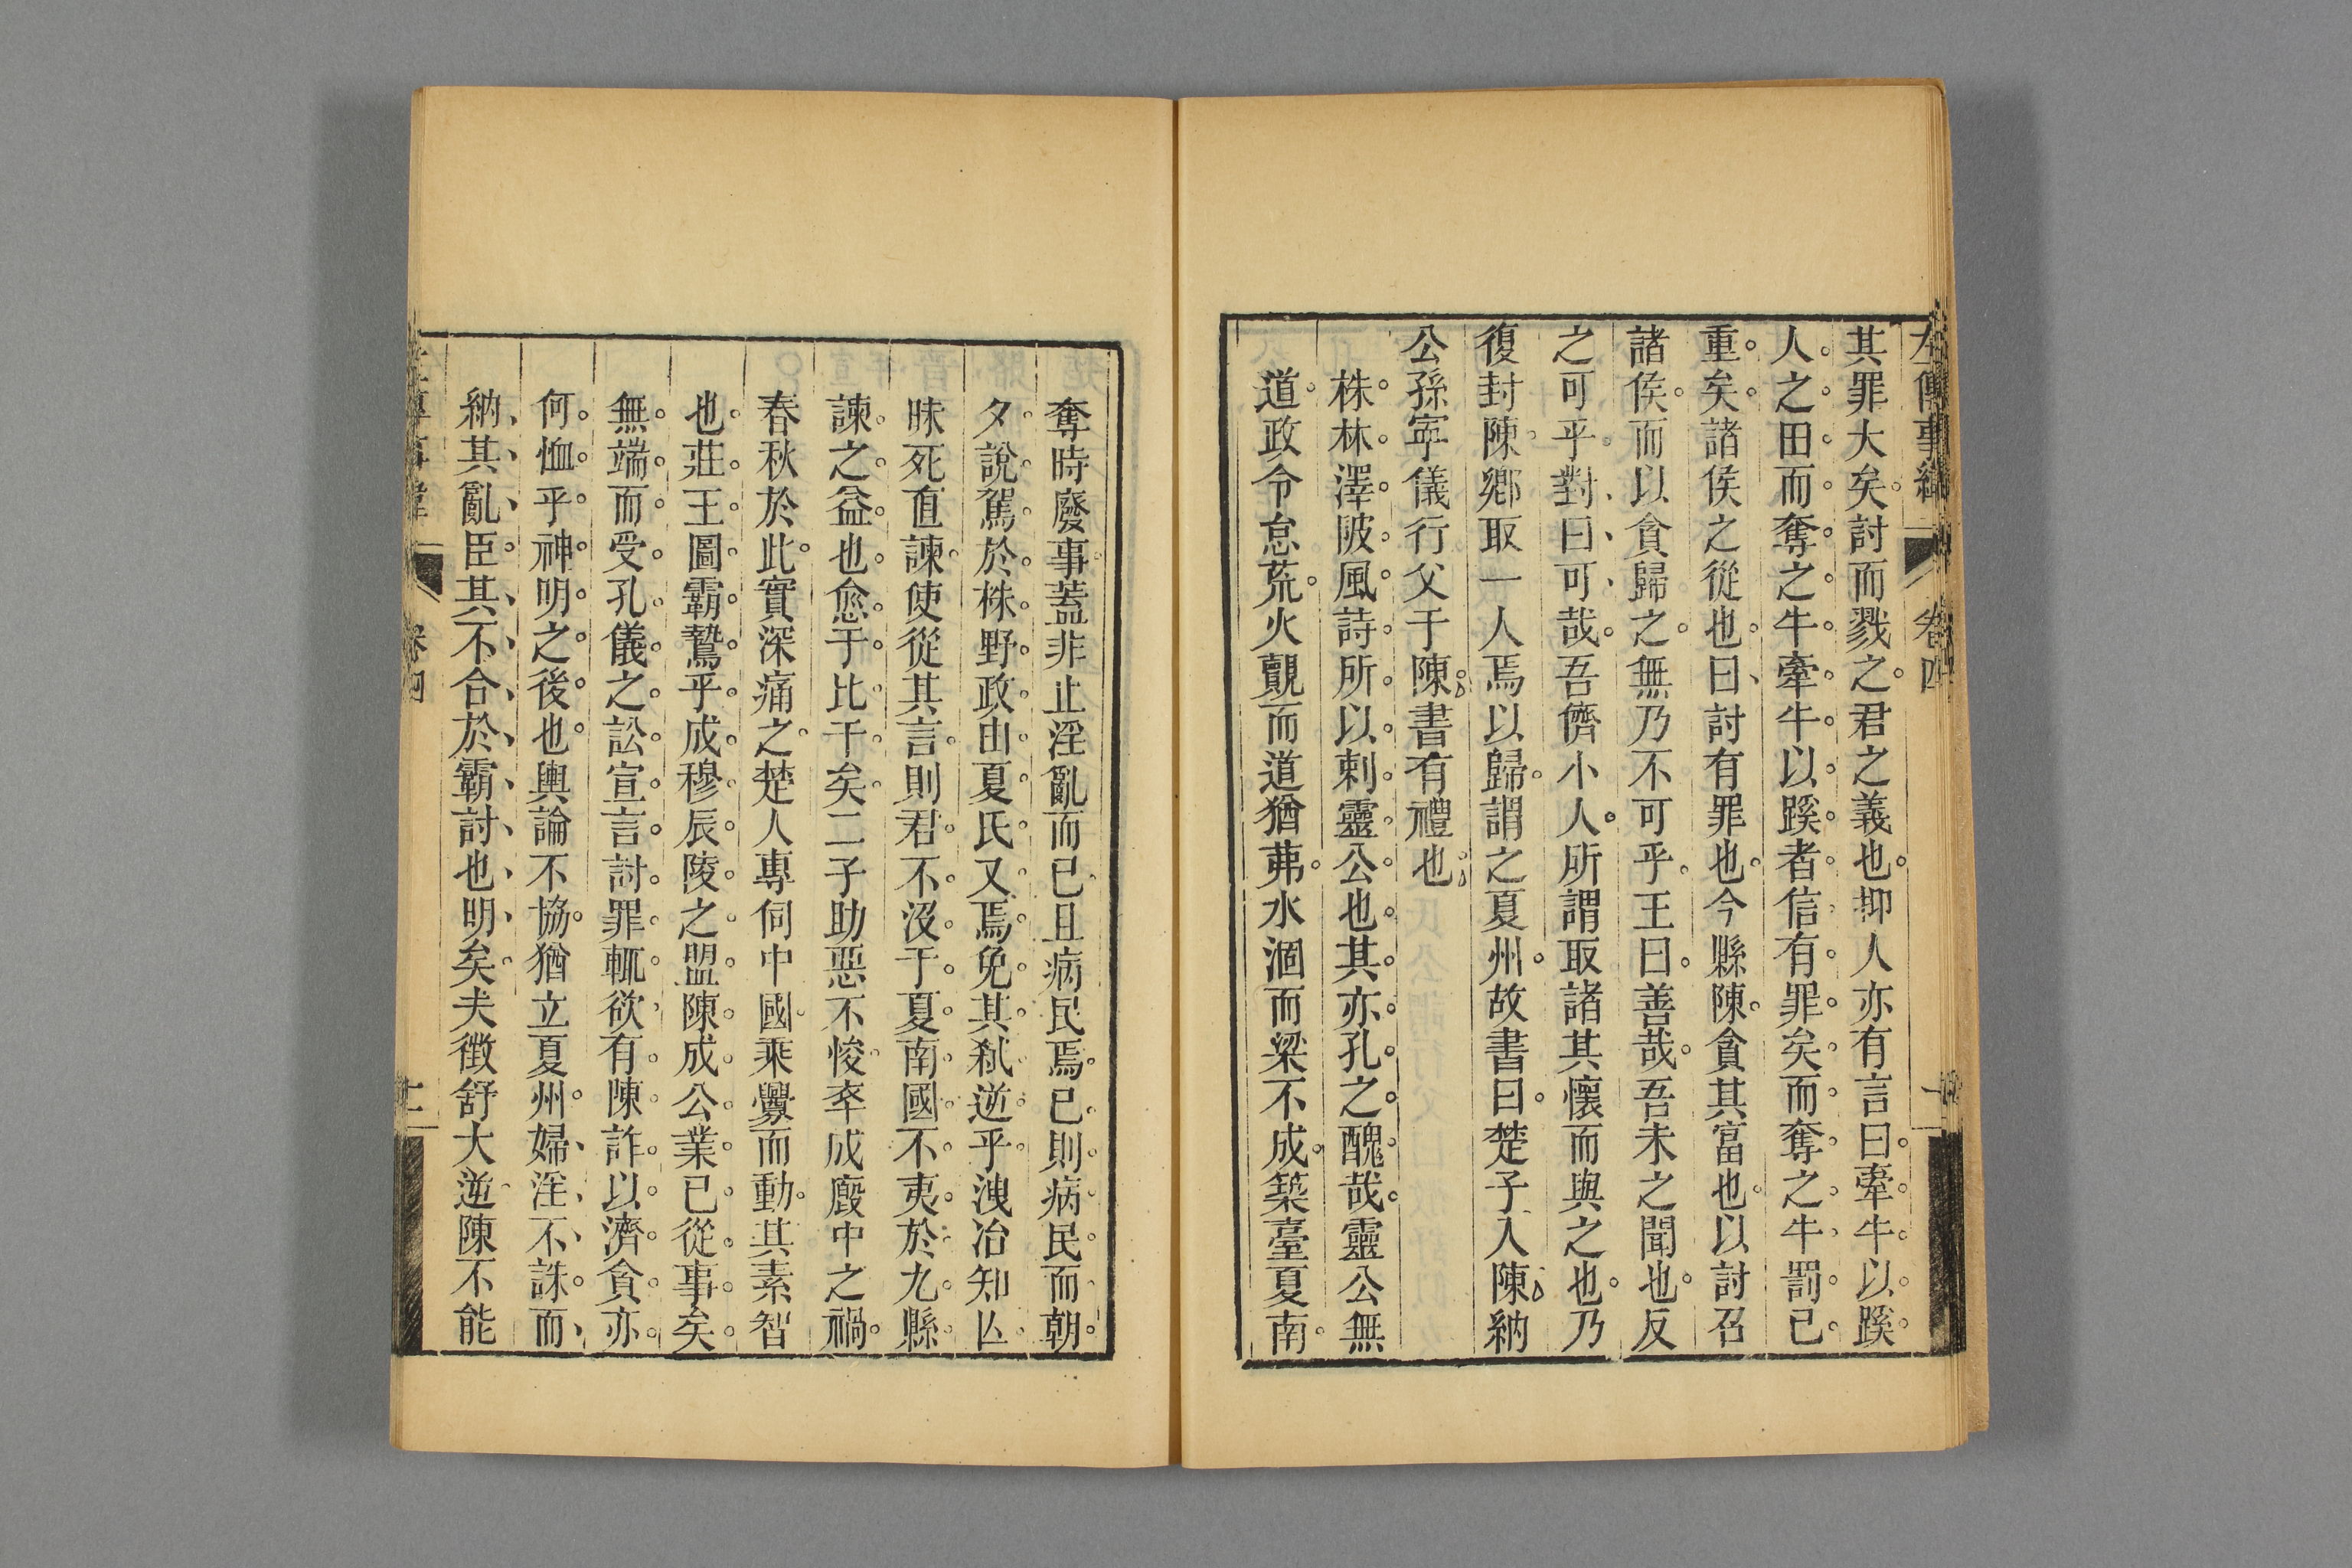 左傳事緯 卷四
其罪大矣討而戮之君之義也抑人亦有言曰牽牛以蹊
人之田而奪之牛牽牛以蹊者信有罪矣而奪之牛罰已
重矣諸侯之從也曰討有罪也今縣陳貪其富也以討召
諸侯而以貪歸之無乃不可乎王曰善哉吾未之聞也反
之可乎對曰可哉吾儕小人所謂取諸其懷而與之也乃
復封陳鄉取一人焉以歸謂之夏州故書曰楚子入陳納
公孫寜儀行父于陳書有禮也
株林澤陂風詩所以刺靈公也其亦孔之醜哉靈公無
道政令怠荒火覿而道猶茀水涸而梁不成築臺夏南
奪時廢事蓋非止淫亂而已且病民焉已則病民而朝
夕說駕於株野政由夏氏又焉免其弒逆乎洩冶知亾
昧死直諫使從其言則君不沒于夏南國不夷於九縣
諫之益也愈于比干矣二子助惡不悛卒成廄中之禍
春秋於此實深痛之楚人專伺中國乘釁而動其素智
也莊王圖霸鷙乎成穆辰陵之盟陳成公業已從事矣
無端而受孔儀之訟宣言討罪輒欲有陳詐以濟貪亦
何恤乎神明之後也輿論不協猶立夏州婦淫不誅而
納其亂臣其不合於霸討也明矣夫徵舒大逆陳不能
左傳事緯 卷四 十二